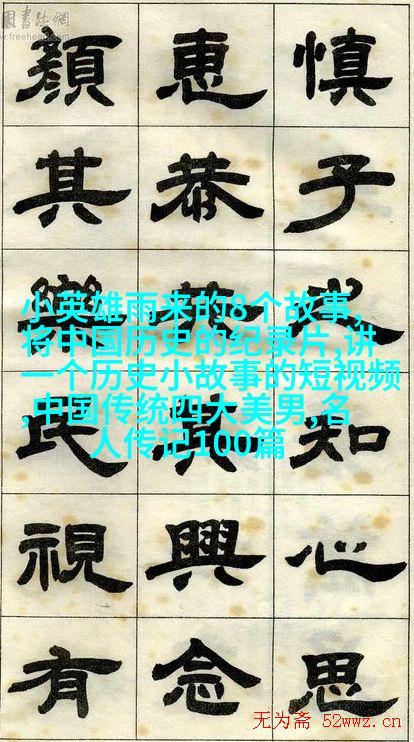 國書法網
慎子知心思
惠恭興念
顏其樂民視有
小英雄雨来的8个故事,
将中国历史的纪录片,讲
一个历史小故事的短视频
,中国传统四大美男,名
人传记100篇
无为斋 52wwz.cn